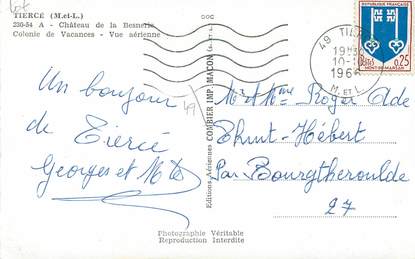 TIERCÉ (M.-et-L.)
230-54 A - Château de la Besnerie
Colonie de Vacances - Vue aérienne
Un bonjour
de Tiercé
Georges et
49
Editions Aériennes COMBIER IMP. MACON
Photographie Véritable
Reproduction Interdite
REPUBLIQUE FRANÇAISE
POSTES 0,25
MONT-DE-MARSAN
49 TIERCÉ
196
M. ET L.
M. et Mme Roger
Thuit-Hébert
Par Bourgtheroulde
27